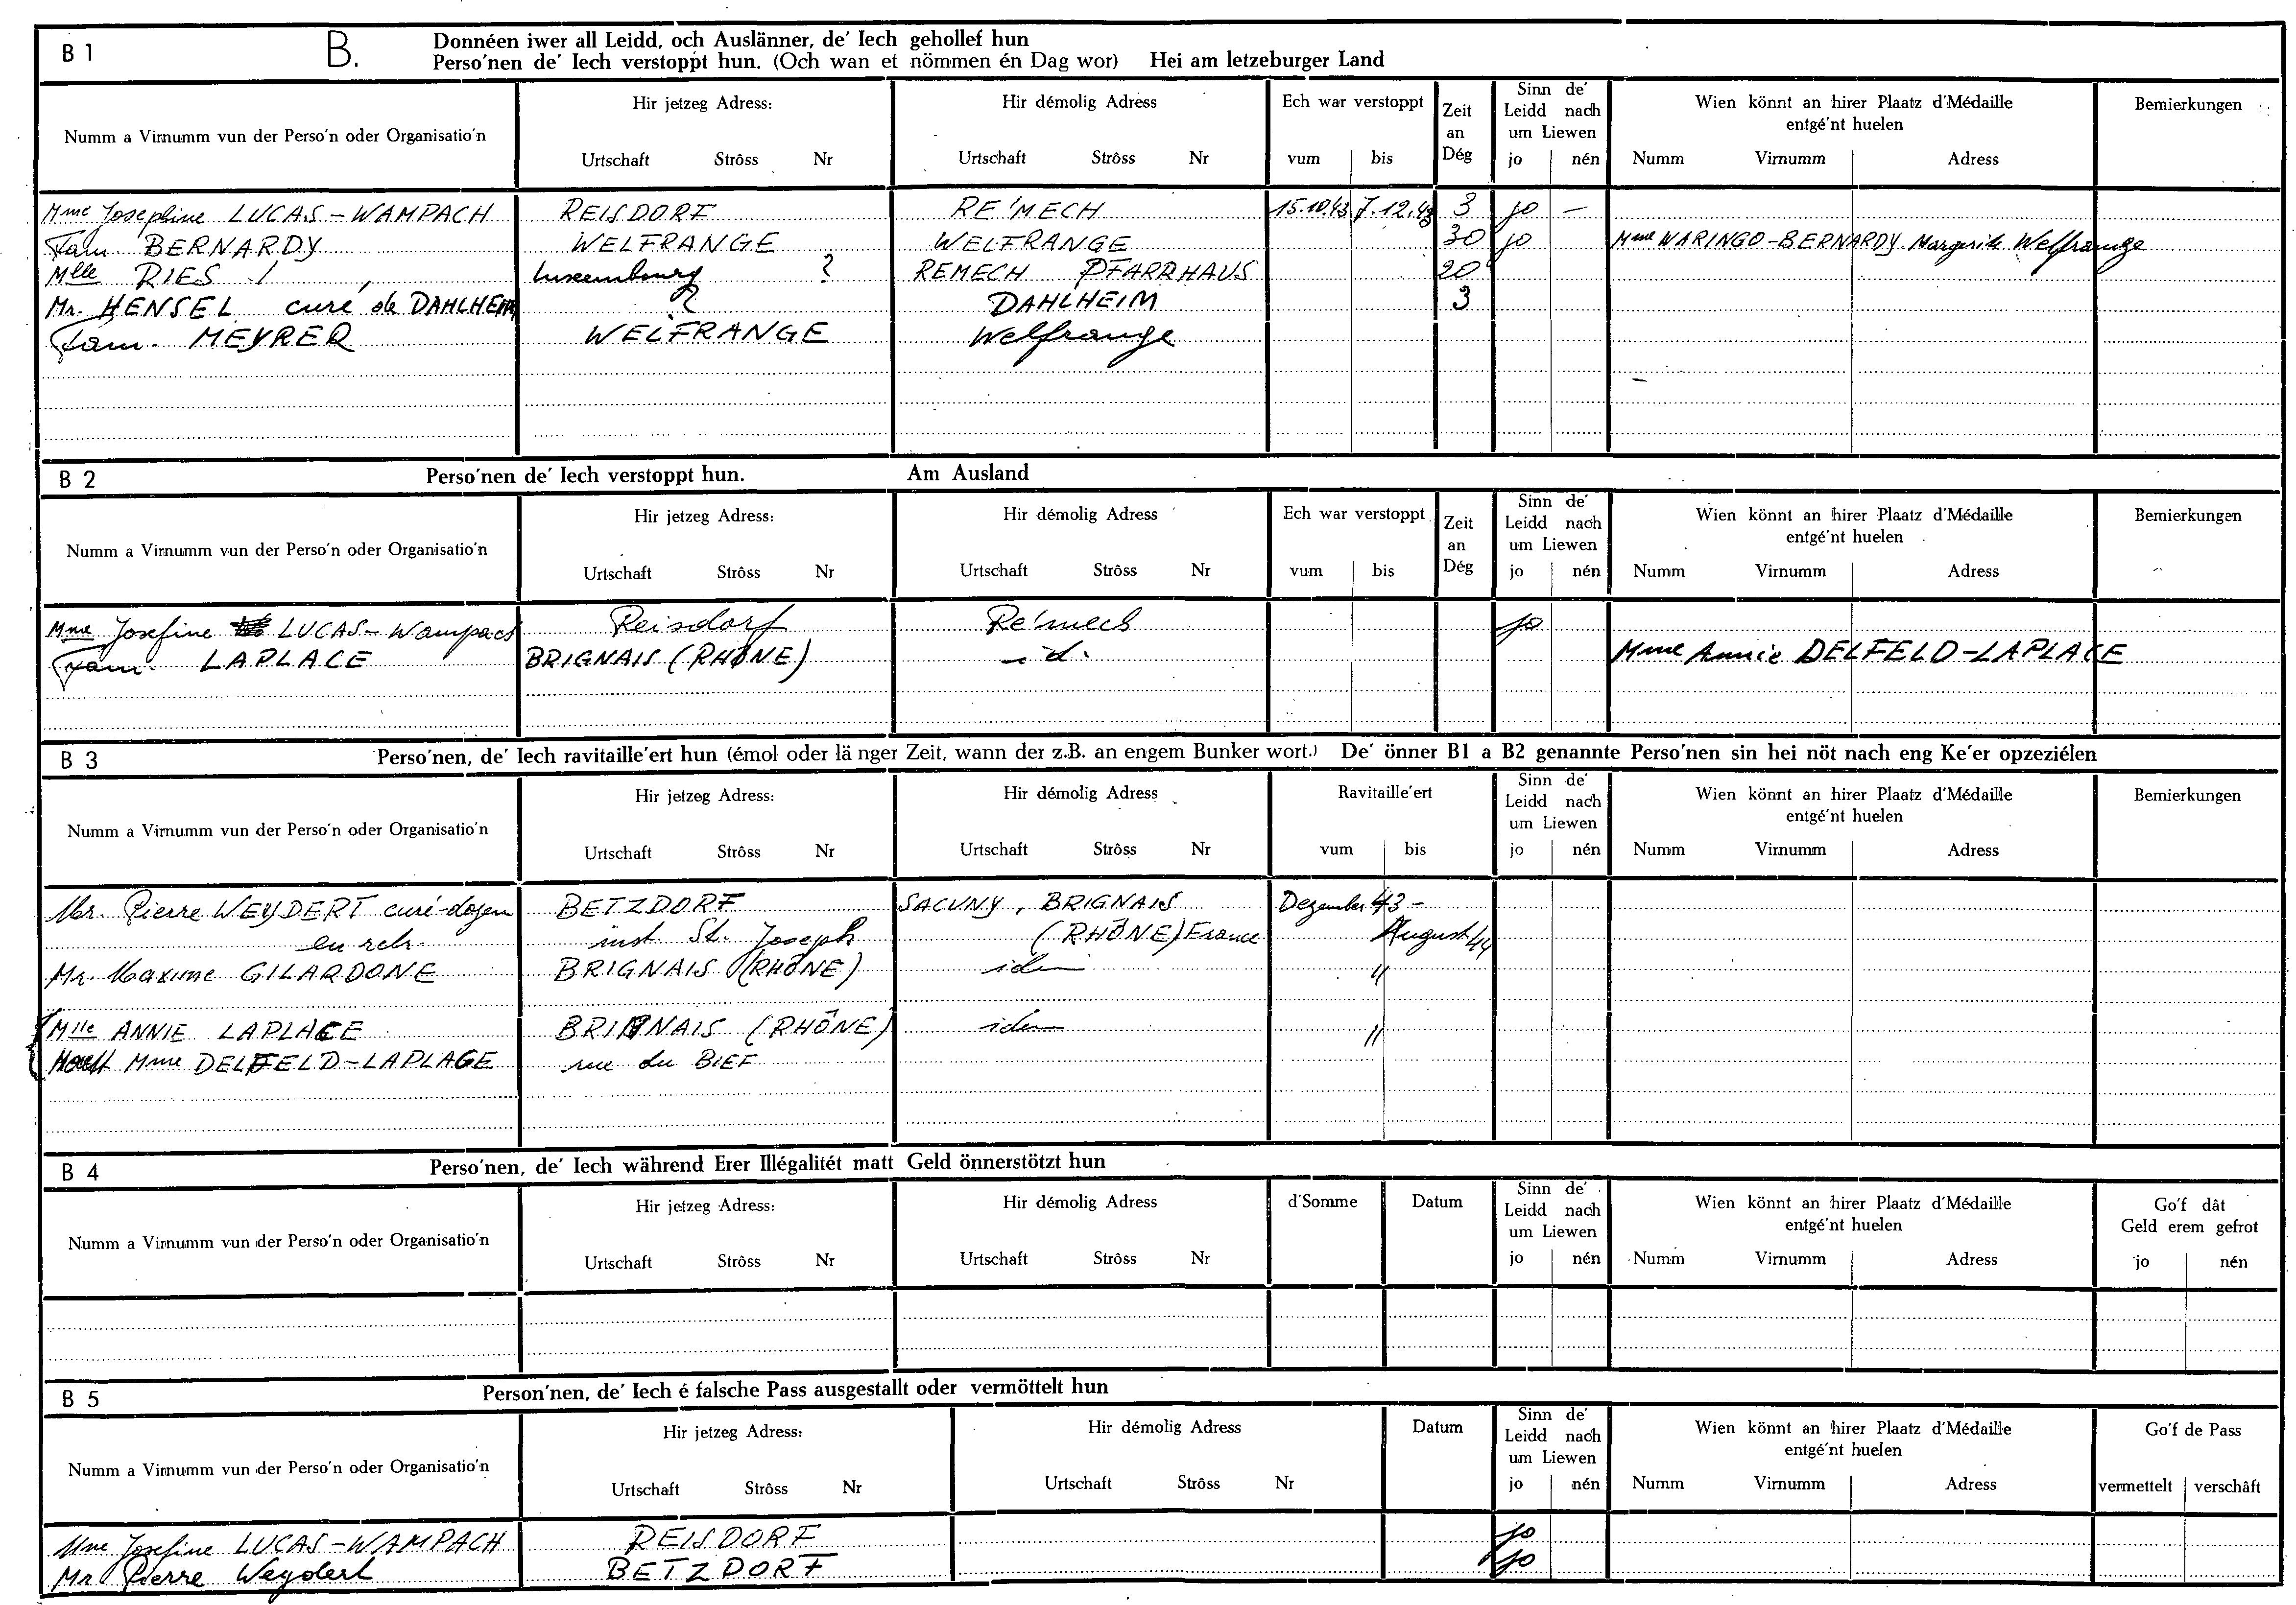 B 1 B. Donnéen iwer all Leidd, och Auslänner, de' Iech gehollef hun
Perso'nen de' Iech verstoppt hun. (Och wan et nömmen én Dag wor) Hei am letzeburger Land
Numm a Virnumm vun der Perso'n oder Organisatio'n
Hir jetzeg Adress:
Urtschaft Strôss Nr
Hir démolig Adress
Urtschaft Strôss Nr
Ech war verstoppt
vum bis
Zeit
an
Dég
Sinn de'
Leidd nach
um Liewen
jo nén
Wien könnt an hirer Plaatz d'Médaille
entgé'nt huelen
Numm Virnumm Adress
Bemierkungen
Mme Josephine LUCAS-WAMPACH REISDORF RE'MECH 15.10.43 7.12.43 3 jo —
Fam. BERNARDY WELFRANGE WELFRANGE 30 jo Mme WARINGO-BERNARDY Margerite Welfrange
Mlle RIES Luxembourg ? REMECH PFARRHAUS 20
Mr. HENSEL curé de DAHLHEIM ? DAHLHEIM 3
Fam. MEYRER WELFRANGE Welfrange
B 2 Perso'nen de' Iech verstoppt hun. Am Ausland
Numm a Virnumm vun der Perso'n oder Organisatio'n
Hir jetzeg Adress:
Urtschaft Strôss Nr
Hir démolig Adress
Urtschaft Strôss Nr
Ech war verstoppt
vum bis
Zeit
an
Dég
Sinn de'
Leidd nach
um Liewen
jo nén
Wien könnt an hirer Plaatz d'Médaille
entgé'nt huelen
Numm Virnumm Adress
Bemierkungen
Mme Josefine LUCAS-Wampach Reisdorf Re'mech jo
Fam. LAPLACE BRIGNAIS (RHÔNE) id. Mme Annie DELFELD-LAPLACE
B 3 Perso'nen, de' Iech ravitaille'ert hun (émol oder lä nger Zeit, wann der z.B. an engem Bunker wort.) De' önner B1 a B2 genannte Perso'nen sin hei nöt nach eng Ke'er opzeziélen
Numm a Virnumm vun der Perso'n oder Organisatio'n
Hir jetzeg Adress:
Urtschaft Strôss Nr
Hir démolig Adress
Urtschaft Strôss Nr
Ravitaille'ert
vum bis
Sinn de'
Leidd nach
um Liewen
jo nén
Wien könnt an hirer Plaatz d'Médaille
entgé'nt huelen
Numm Virnumm Adress
Bemierkungen
Mr. Pierre WEYDERT curé-doyen BETZDORF SACUNY, BRIGNAIS Dezember 43 -
en retr. inst. St. Joseph (RHÔNE) France August 44
Mr. Maxime GILARDONE BRIGNAIS (RHÔNE) idem "
Mlle ANNIE LAPLACE BRIGNAIS (RHÔNE) idem "
Mme DELFELD-LAPLAGE rue du BIEF
B 4 Perso'nen, de' Iech während Erer Illégalitét matt Geld önnerstötzt hun
Numm a Virnumm vun der Perso'n oder Organisatio'n
Hir jetzeg Adress:
Urtschaft Strôss Nr
Hir démolig Adress
Urtschaft Strôss Nr
d'Somme
Datum
Sinn de'
Leidd nach
um Liewen
jo nén
Wien könnt an hirer Plaatz d'Médaille
entgé'nt huelen
Numm Virnumm Adress
Go'f dât
Geld erem gefrot
jo nén
B 5 Person'nen, de' Iech é falsche Pass ausgestallt oder vermöttelt hun
Numm a Virnumm vun der Perso'n oder Organisatio'n
Hir jetzeg Adress:
Urtschaft Strôss Nr
Hir démolig Adress
Urtschaft Strôss Nr
Datum
Sinn de'
Leidd nach
um Liewen
jo nén
Wien könnt an hirer Plaatz d'Médaille
entgé'nt huelen
Numm Virnumm Adress
Go'f de Pass
vermettelt verschâft
Mme Josefine LUCAS-WAMPACH REISDORF jo
Mr Pierre Weydert BETZDORF jo